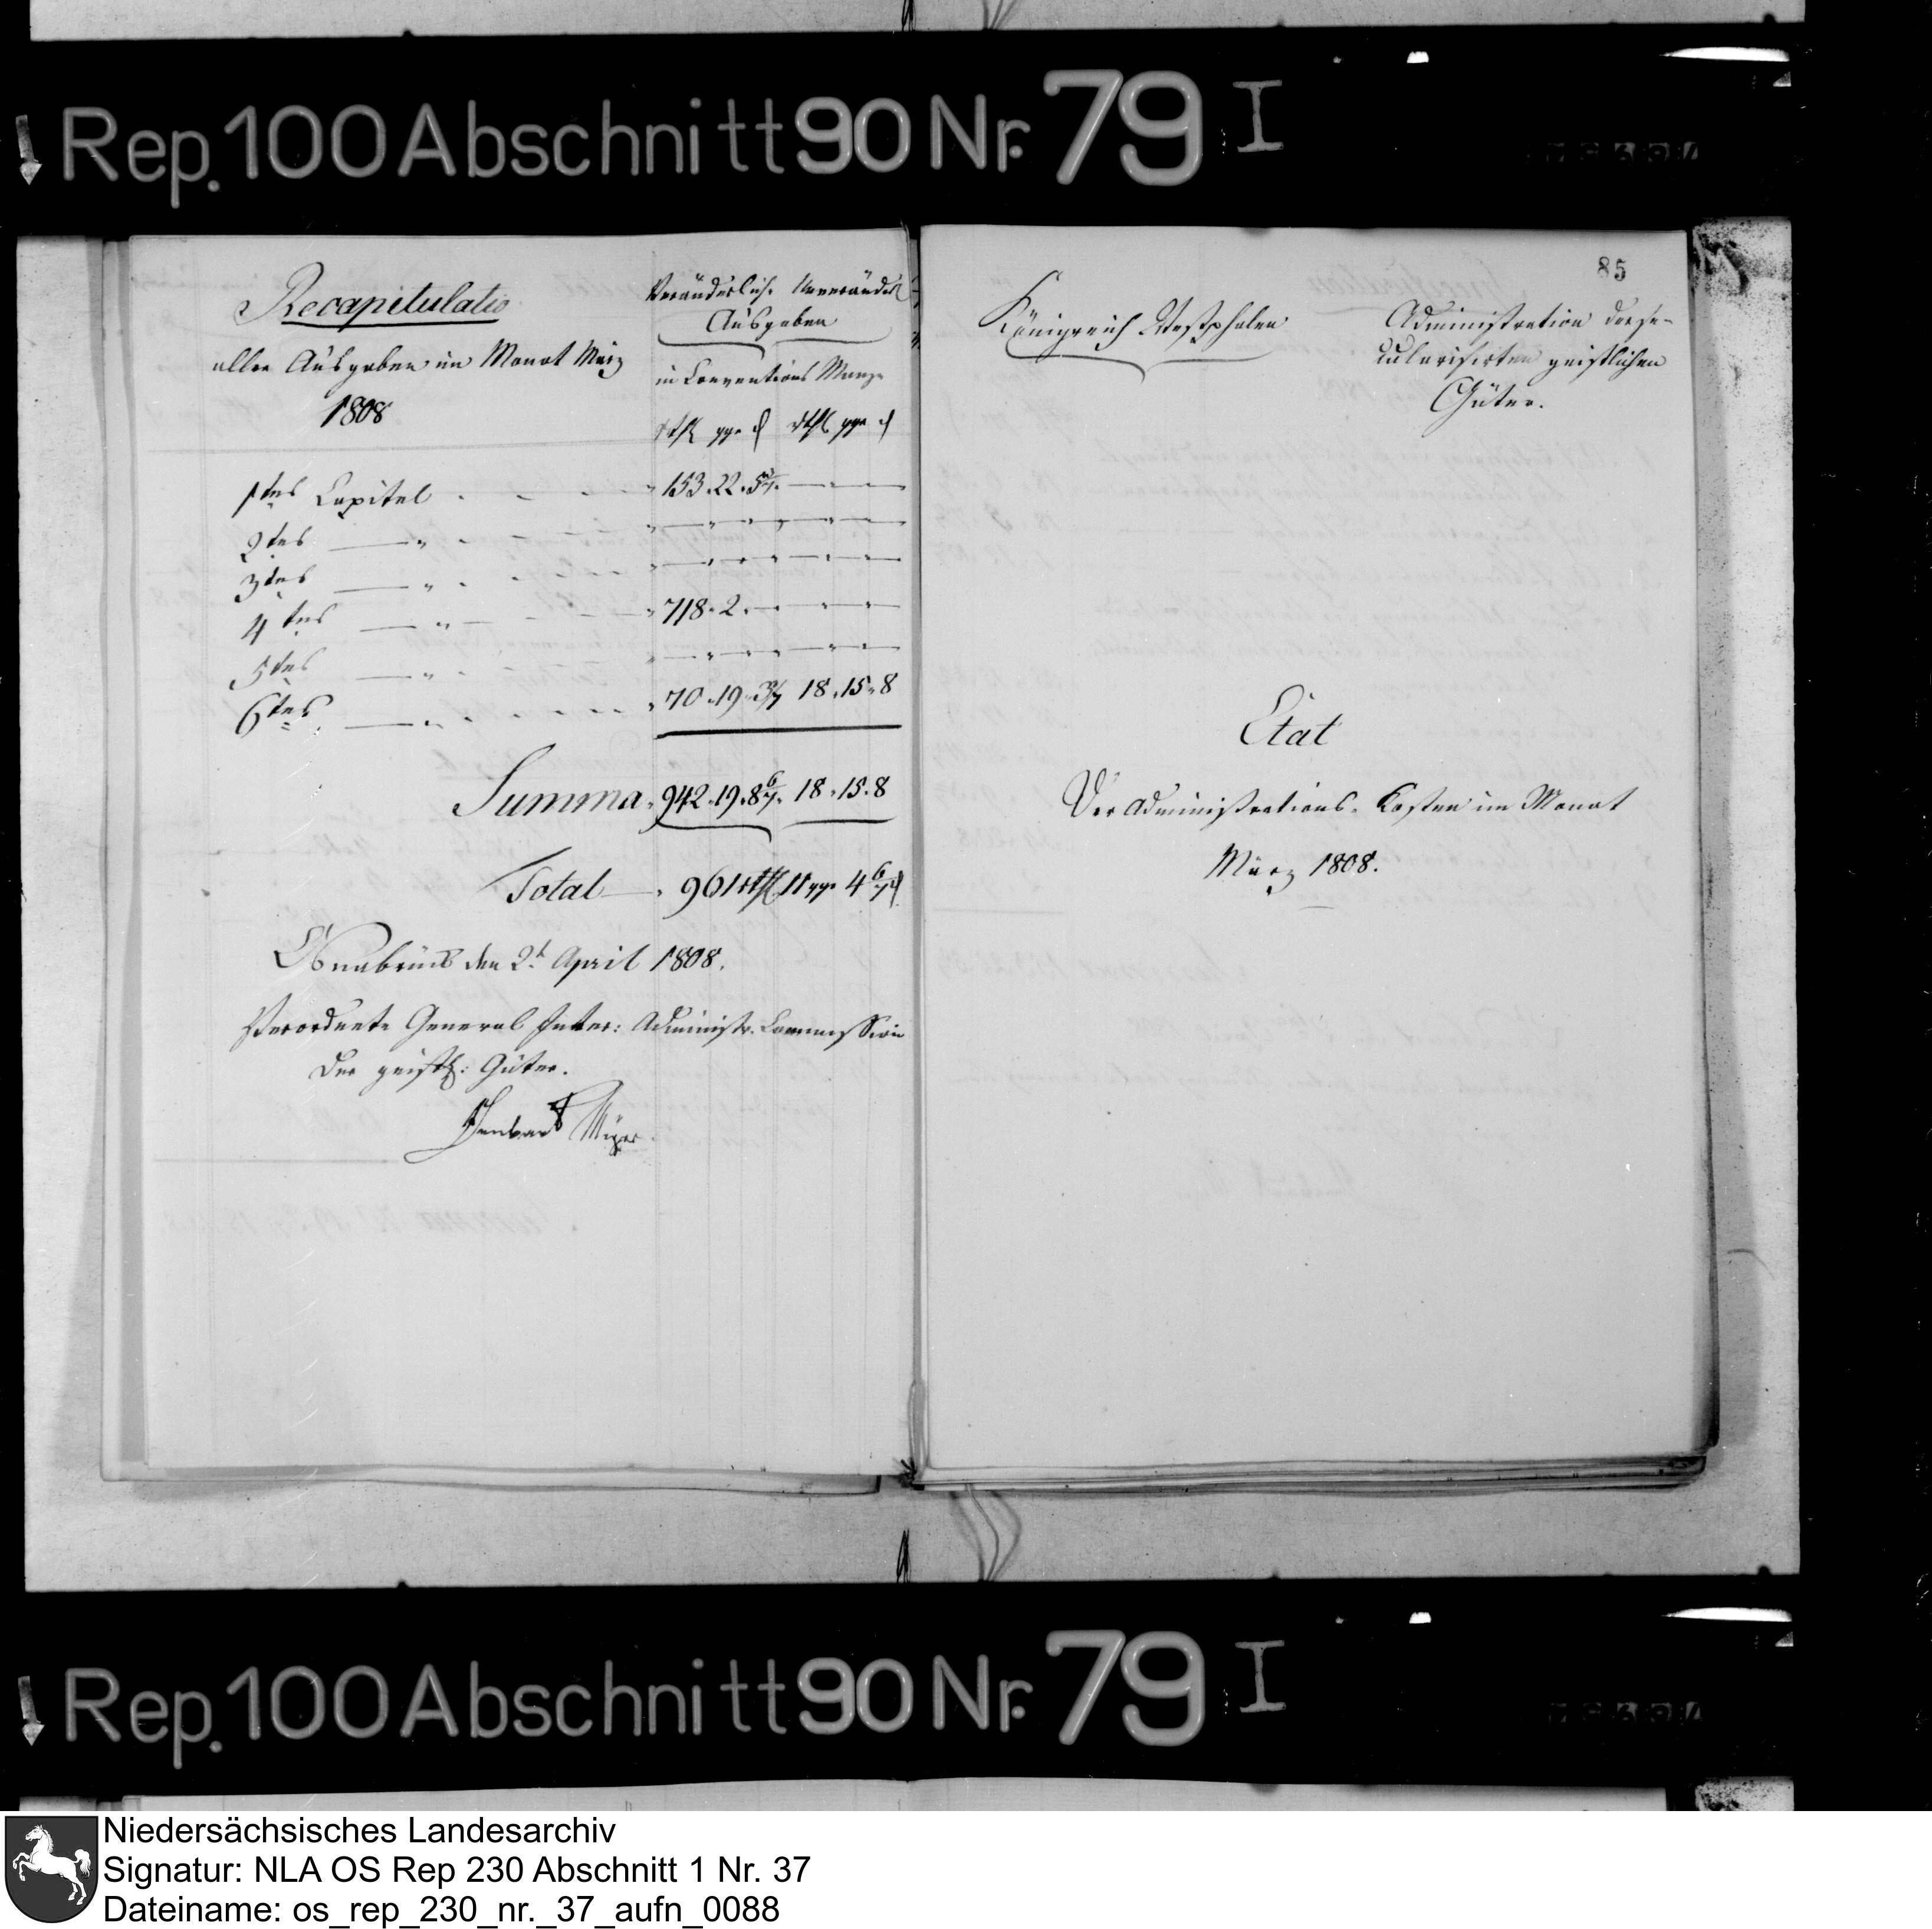 Rep. 100 Abschnitt 90 Nr. 79 I
Recapitulatio
aller Ausgaben im Monat März
1808
Veränderliche Unveränderl
Ausgaben
in Conventions Münze
rthl ggr d rthl ggr d
1tes Capitel - - - " 153 " 22 " 5 5/7 " — " — " —
2tes — " - - - " — " — " — " — " —
3tes — " - - - " — " — " — " — " —
4tes — " - - - " 718 " 2 " — " — " —
5tes — " - - - " — " — " — " — " —
6tes — " - - - " 70 " 19 " 3 1/7 18 " 15 " 8
Summa " 942 " 19 " 8 6/7 " 18 " 15 " 8
Total — " 961 rthl 11 ggr 4 6/7 d
Osnabrück den 2t April 1808.
Verordnete General Inter: Administr. Commission
der geistl: Güter.
85
Königreich Westphalen
Administration der se-
cularisirten geistlichen
Güter.
Etat
Der Administrations-Kosten im Monat
März 1808.
Rep. 100 Abschnitt 90 Nr. 79 I
Niedersächsisches Landesarchiv
Signatur: NLA OS Rep 230 Abschnitt 1 Nr. 37
Dateiname: os_rep_230_nr._37_aufn_0088